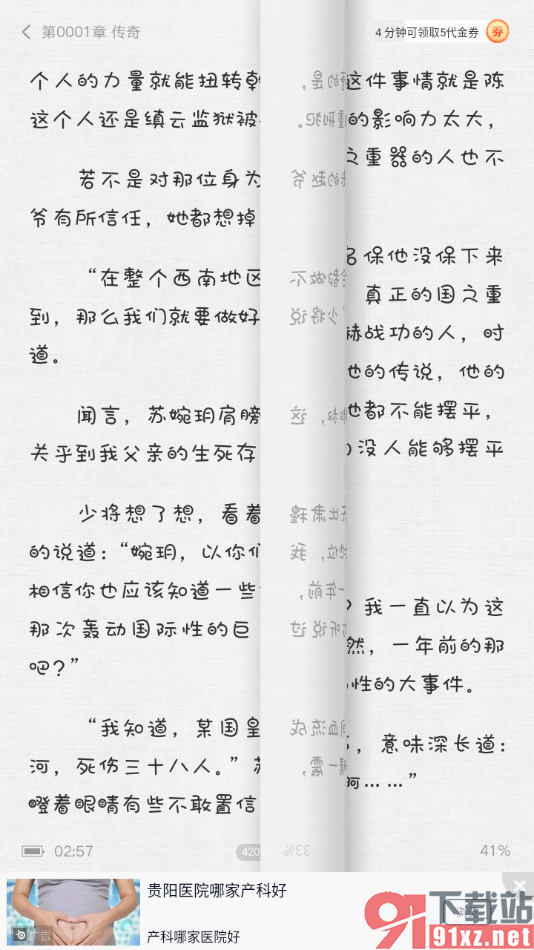 第0001章 传奇
4 分钟可领取5代金券
券
个人的力量就能扭转乾
这个人还是缜云监狱被
若不是对那位身为
爷有所信任，她都想掉
“在整个西南地区
到，那么我们就要做好
道。
闻言，苏婉玥肩膀
关乎到我父亲的生死存
少将想了想，看着
的说道：“婉玥，以你们
相信你也应该知道一些
那次轰动国际性的巨
吧？”
“我知道，某国皇
河，死伤三十八人。”
瞪着眼睛有些不敢置信
这件事情就是陈
的影响力太大，
之重器的人也不
名保他没保下来
真正的国之重
赫战功的人，时
他的传说，他的
他都不能摆平，
没人能够摆平
？我一直以为这
然，一年前的那
性的大事件。
，意味深长道：
啊……”
02:57
420
33%
41%
贵阳医院哪家产科好
产科哪家医院好
广告
下载站
91xz.net